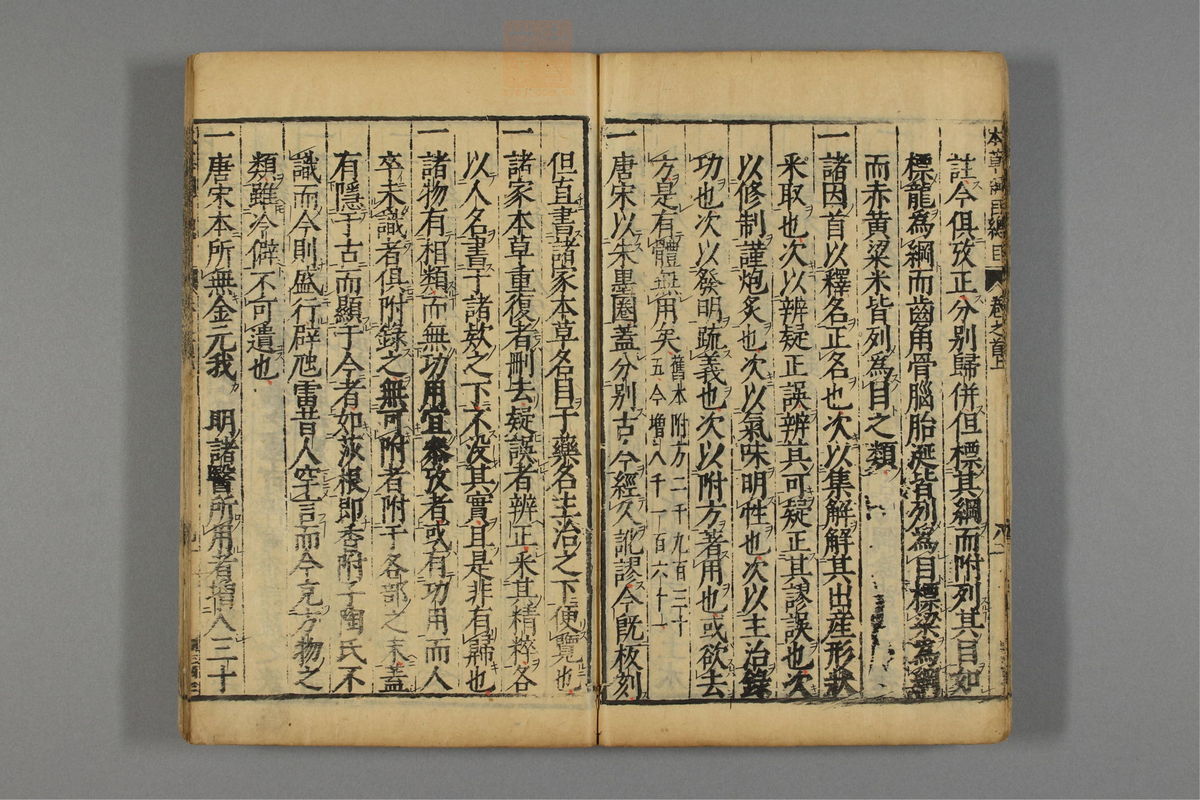 註今俱攷正分别歸併但標其綱而附列其目如
標龍爲綱而齒角骨腦胎涎皆列爲目標梁爲綱
而赤黄粱米皆列爲目之類
一諸因首以釋名正名也次以集解解其出産形狀
采取也次以辨疑正誤辨其可疑正其謬誤也次
以修制謹炮炙也次以氣味明性也次以主治錄
功也次以發明疏義也次以附方著用也或欲去
方是有體無用矣舊本附方二千九百三十
五今增八千一百六十一
一唐宋以朱墨圈蓋分别古今經久訛謬今既板刻
但直書諸家本草名目于藥名主治之下便覽也
一諸家本草重復者刪去疑誤者辨正采其精粹各
以人名書于諸欵之下不没其實且是非有歸也
一諸物有相類而無功用宜參攷者或有功用而人
卒未識者俱附錄之無可附者附于各部之末蓋
有隱于古而顯于今者如莎根即香附子陶氏不
識而今則盛行辟虺雷昔人罕言而今充方物之
類雖冷僻不可遺也
一唐宋本所無金元我 明諸醫所用者增入三十
本草綱目 總目 卷之首上